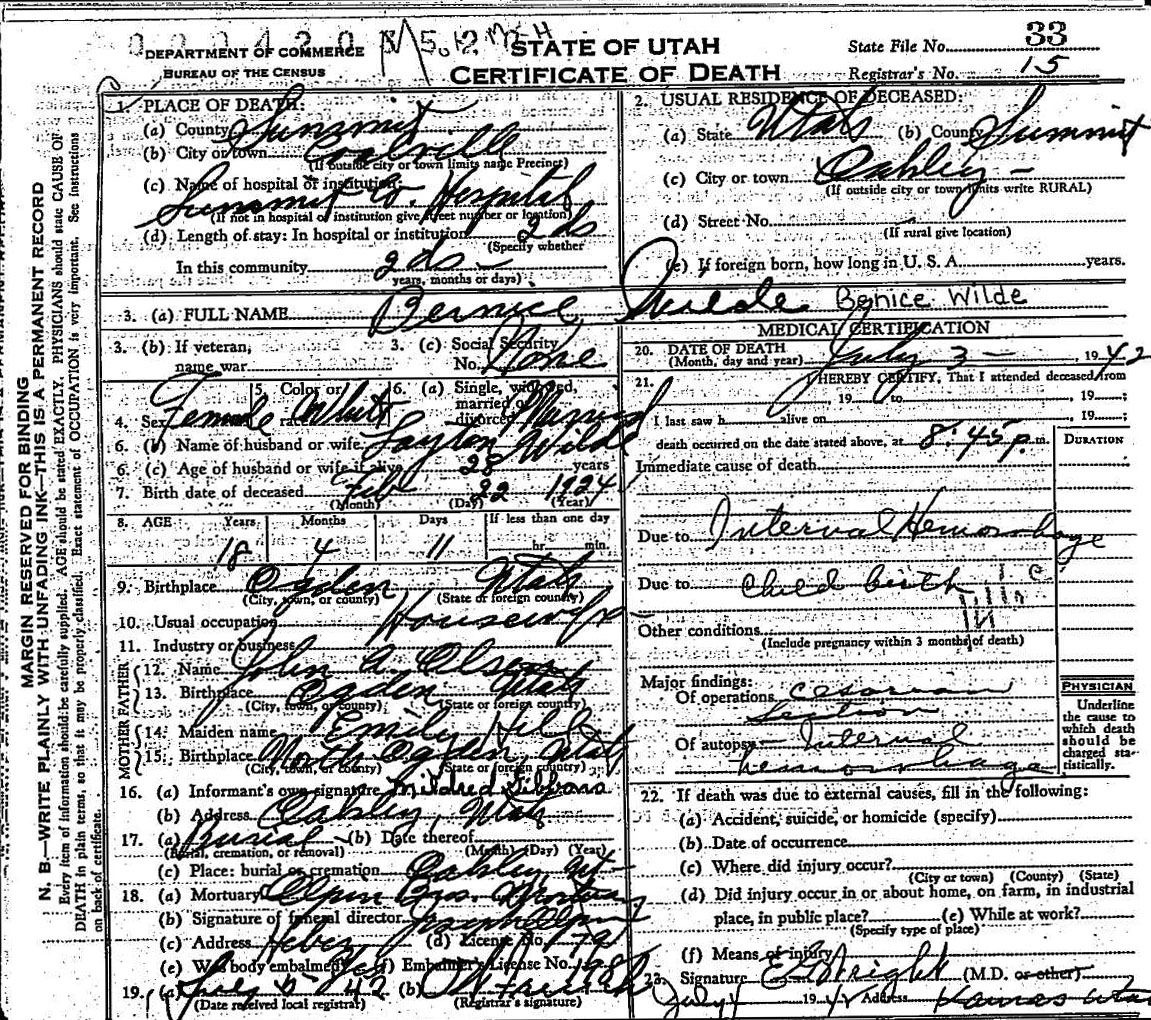 DEPARTMENT OF COMMERCE
BUREAU OF THE CENSUS
STATE OF UTAH
CERTIFICATE OF DEATH
State File No. 33
Registrar's No. 15
MARGIN RESERVED FOR BINDING
N. B.—WRITE PLAINLY WITH UNFADING INK—THIS IS A PERMANENT RECORD
Every item of information should be carefully supplied. AGE should be stated EXACTLY. PHYSICIANS should state CAUSE OF
DEATH in plain terms, so that it may be properly classified. Exact statement of OCCUPATION is very important. See instructions
on back of certificate.
1. PLACE OF DEATH:
(a) County Summit
(b) City or town Coalville
(If outside city or town limits name Precinct)
(c) Name of hospital or institution:
Summit Co. Hospital
(If not in hospital or institution give street number or location)
(d) Length of stay: In hospital or institution 2 ds
(Specify whether
In this community 2 ds
years, months or days)
2. USUAL RESIDENCE OF DECEASED:
(a) State Utah (b) County Summit
(c) City or town Oakley
(If outside city or town limits write RURAL)
(d) Street No.
(If rural give location)
(e) If foreign born, how long in U. S. A. years.
3. (a) FULL NAME Bernice Wilde Benice Wilde
3. (b) If veteran,
name war
3. (c) Social Security
No. None
4. Sex Female
5. Color or
race White
6. (a) Single, widowed,
married or
divorced Married
6. (b) Name of husband or wife Layton Wilde
6. (c) Age of husband or wife if alive 28 years
7. Birth date of deceased Feb 22 1924
(Month) (Day) (Year)
8. AGE Years Months Days If less than one day
18 4 11 hr. min.
9. Birthplace Ogden Utah
(City, town, or county) (State or foreign country)
10. Usual occupation Housewife
11. Industry or business
FATHER
12. Name John A. Olsen
13. Birthplace Ogden Utah
(City, town, or county) (State or foreign country)
MOTHER
14. Maiden name Emily Hill
15. Birthplace North Ogden, Utah
(City, town, or county) (State or foreign country)
16. (a) Informant's own signature Mildred Gibbons
(b) Address Oakley, Utah
17. (a) Burial (b) Date thereof
(Burial, cremation, or removal) (Month) (Day) (Year)
(c) Place: burial or cremation Oakley, Ut
18. (a) Mortuary Olpin Bros. Mortuary
(b) Signature of funeral director Joseph Olpin
(c) Address Heber (d) License No.
(e) Was body embalmed? Yes (f) Embalmer's License No.
19. (a) July 5 42 (b)
(Date received local registrar) (Registrar's signature)
MEDICAL CERTIFICATION
20. DATE OF DEATH
(Month, day and year) July 3 - , 1942
21. I HEREBY CERTIFY, That I attended deceased from
, 19 to , 19 ;
I last saw h alive on , 19 ;
death occurred on the date stated above, at 8:45 p. m.
DURATION
Immediate cause of death
Due to Internal Hemorrhage
Due to Child birth
Other conditions
(Include pregnancy within 3 months of death)
Major findings:
Of operations cesarian
section
Of autopsy Internal
hemorrhage
PHYSICIAN
Underline
the cause to
which death
should be
charged sta-
tistically.
22. If death was due to external causes, fill in the following:
(a) Accident, suicide, or homicide (specify)
(b) Date of occurrence
(c) Where did injury occur?
(City or town) (County) (State)
(d) Did injury occur in or about home, on farm, in industrial
place, in public place? (e) While at work?
(Specify type of place)
(f) Means of injury
23. Signature E. Wright (M.D. or other)
July 4 1942 Address Kamas Utah